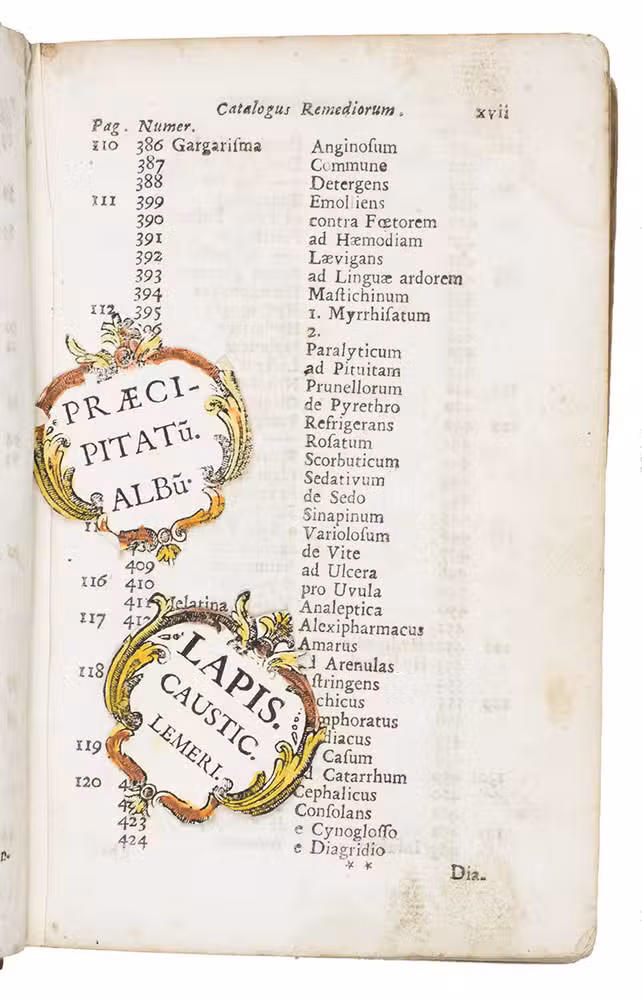 Catalogus Remediorum. xvii
Pag. Numer.
110 386 Gargariſma Anginoſum
387 Commune
388 Detergens
111 399 Emolliens
390 contra Fœtorem
391 ad Hæmodiam
392 Lævigans
393 ad Linguæ ardorem
394 Maſtichinum
112 395 1. Myrrhiſatum
396 2.
Paralyticum
ad Pituitam
Prunellorum
de Pyrethro
Refrigerans
Roſatum
Scorbuticum
Sedativum
de Sedo
Sinapinum
Varioloſum
de Vite
409 ad Ulcera
116 410 pro Uvula
411 Jelatina Analeptica
117 412 Alexipharmacus
Amarus
118 Arenulas
ſtringens
chicus
mphoratus
119 diacus
Caſum
Catarrhum
120 Cephalicus
Conſolans
423 e Cynogloſſo
424 e Diagridio
* *
Dia-
PRÆCI-
PITATũ.
ALBũ.
LAPIS.
CAUSTIC.
LEMERI.